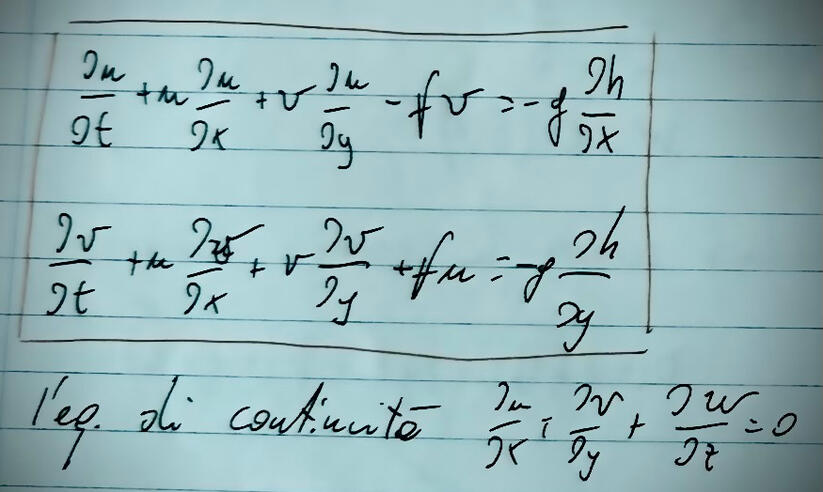 ∂u/∂t + u ∂u/∂x + v ∂u/∂y - fv = -g ∂h/∂x
∂v/∂t + u ∂v/∂x + v ∂v/∂y + fu = -g ∂h/∂y
l'eq. di continuità ∂u/∂x + ∂v/∂y + ∂w/∂z = 0